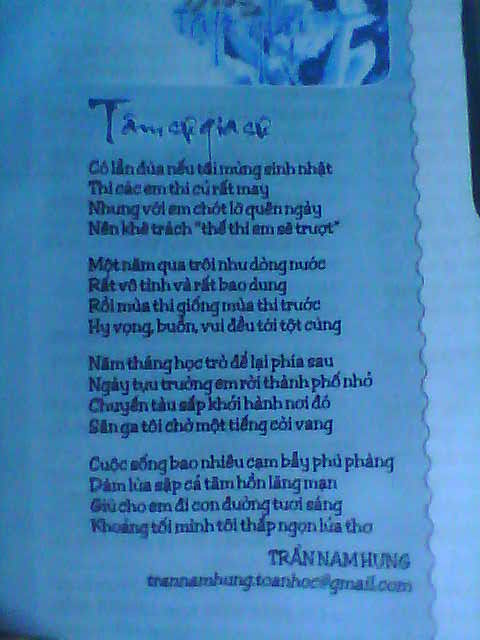 Tâm sự gia sư
Có lần đùa nếu tôi mừng sinh nhật
Thì các em thi cử rất may
Nhưng với em chót lỡ quên ngày
Nên khẽ trách "thế thì em sẽ trượt"
Một năm qua trôi như dòng nước
Rất vô tình và rất bao dung
Rồi mùa thi giống mùa thi trước
Hy vọng, buồn, vui đều tới tột cùng
Năm tháng học trò để lại phía sau
Ngày tựu trường em rời thành phố nhỏ
Chuyến tàu sắp khởi hành nơi đó
Sân ga tôi chờ một tiếng còi vang
Cuộc sống bao nhiêu cạm bẫy phũ phàng
Dám lừa sập cả tâm hồn lãng mạn
Giữ cho em đi con đường tươi sáng
Khoảng tối mình tôi thắp ngọn lửa thơ
TRẦN NAM HƯNG
trannamhung.toanhoc@gmail.com